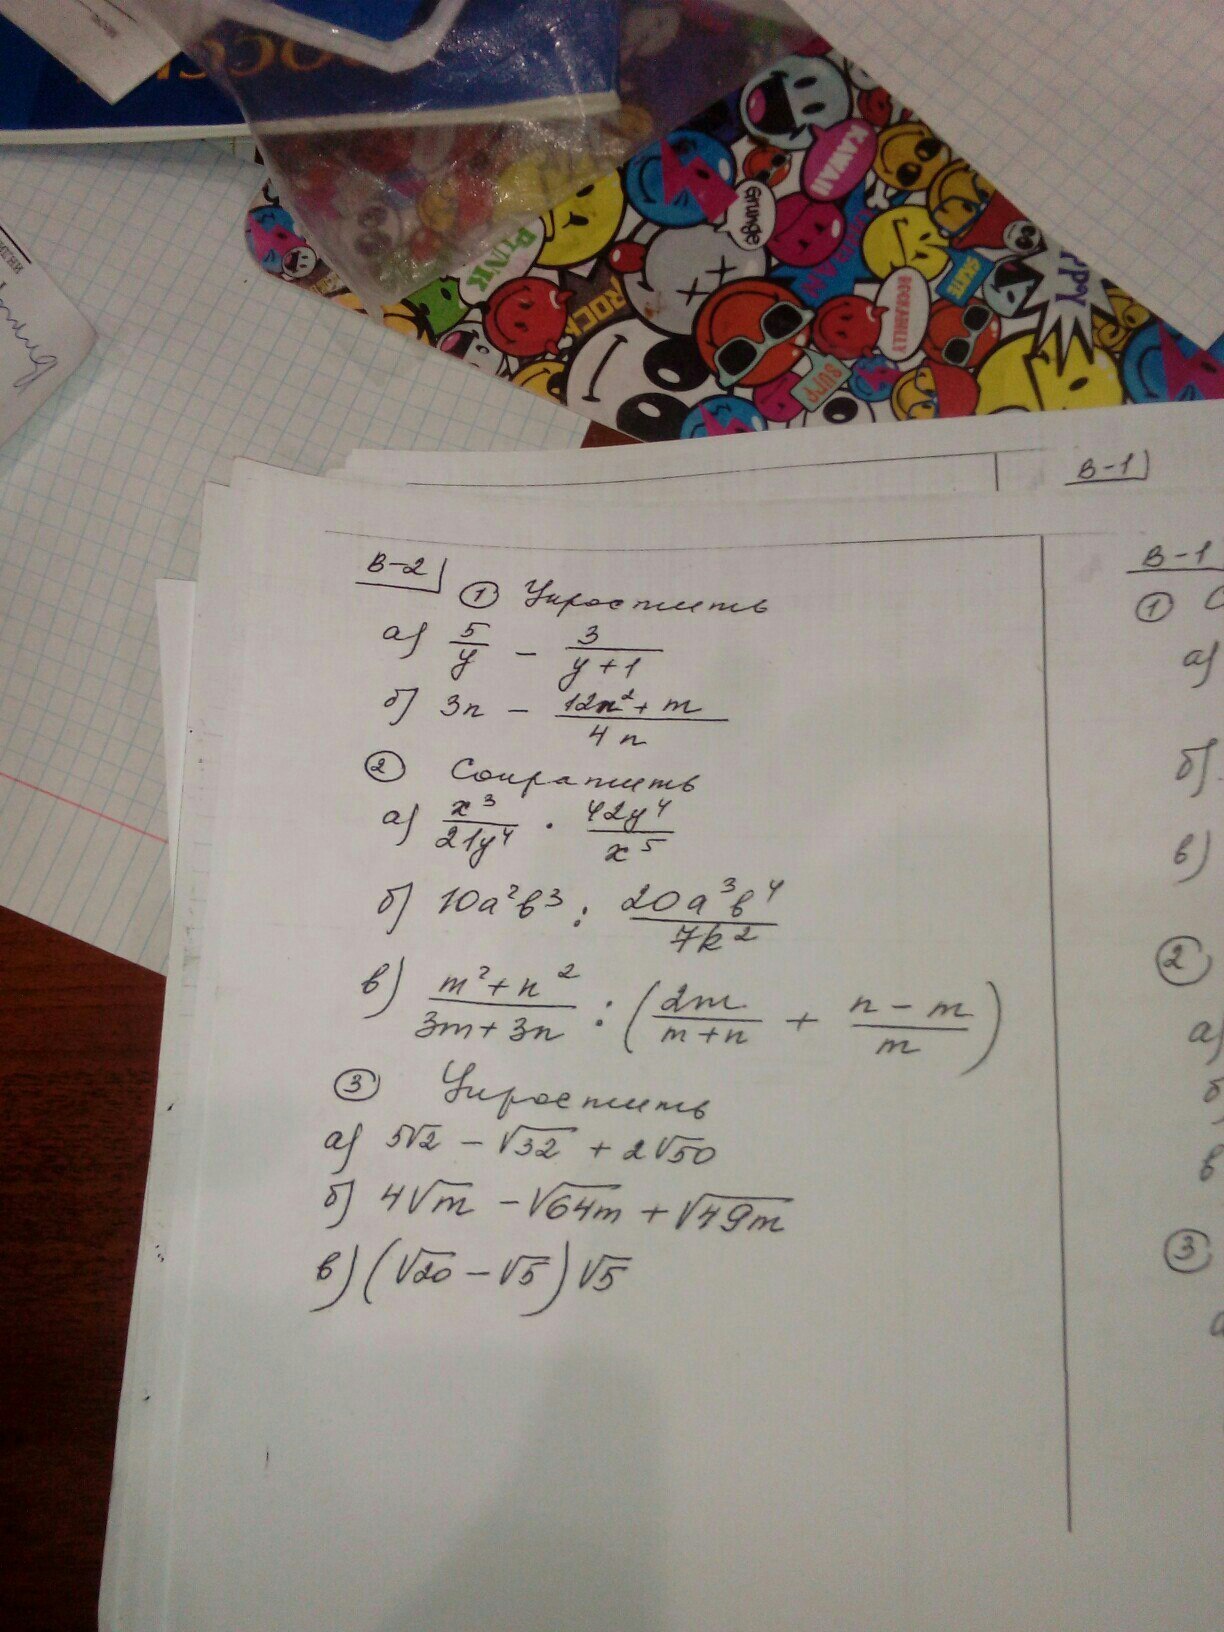 KAWAII
Grunge
PUNK
ROCK
SKATE
ROCKABILLY
SUPP
B-1
В-2
① Упростить
а) 5/y − 3/(y+1)
б) 3n − (12n²+m)/(4n)
② Сократить
а) x³/(21y⁴) · 42y⁴/x⁵
б) 10a²b³ : 20a³b⁴/(7k²)
в) (m²+n²)/(3m+3n) : (2m/(m+n) + (n−m)/m)
③ Упростить
а) 5√2 − √32 + 2√50
б) 4√m − √64m + √49m
в) (√20 − √5)√5
В-1
①
а)
б)
в)
②
а)
б
в
③